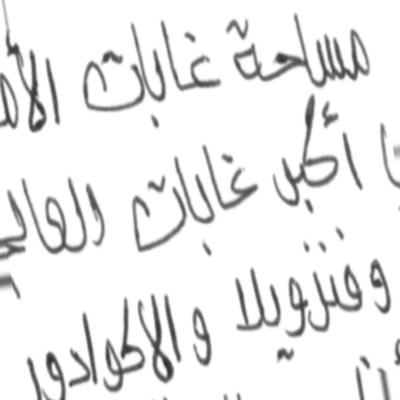 مساحة غابات
أكبر غابات العالم
وفنزويلا والاكوادور